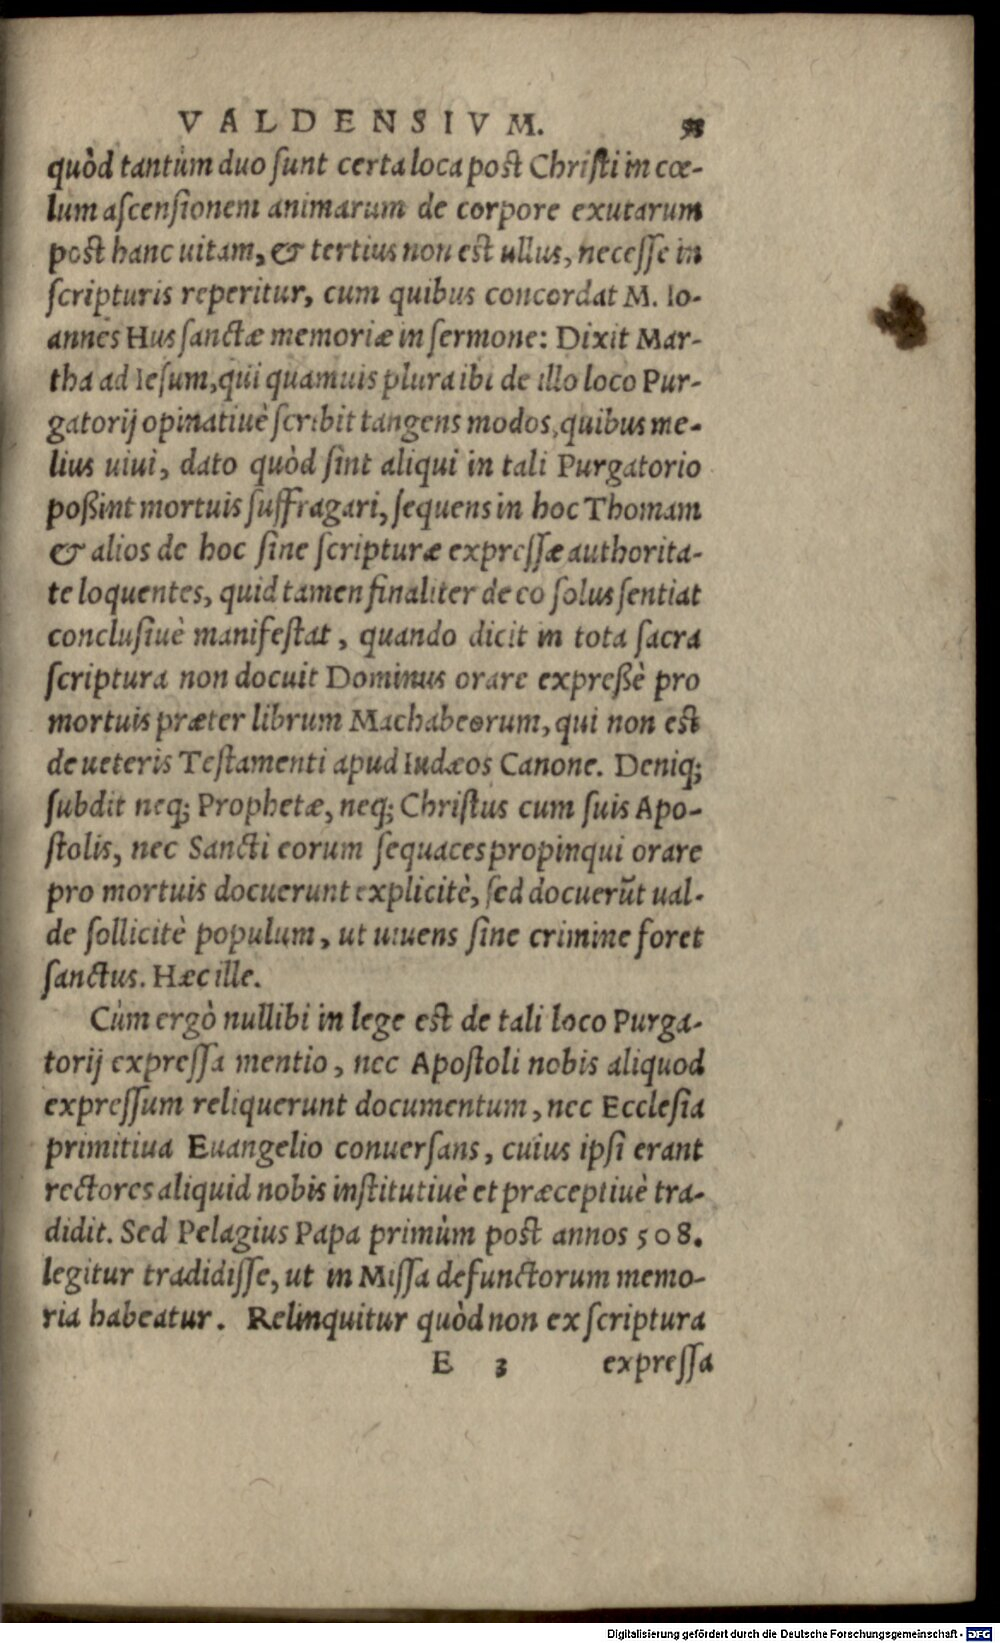 VALDENSIVM.
quòd tantùm duo ſunt certa loca post Chriſti in cœ-
lum aſcenſionem animarum de corpore exutarum
post hanc uitam, & tertius non est ullus, neceſſe in
ſcripturis reperitur, cum quibus concordat M. Io-
annes Hus ſanctæ memoriæ in ſermone: Dixit Mar-
tha ad Ieſum, qui quamuis plura ibi de illo loco Pur-
gatorij opinatiuè ſcribit tangens modos, quibus me-
lius uiui, dato quòd ſint aliqui in tali Purgatorio
poßint mortuis ſuffragari, ſequens in hoc Thomam
& alios de hoc ſine ſcripturæ expreſſæ authorita-
te loquentes, quid tamen finaliter de eo ſolus ſentiat
concluſiuè manifeſtat, quando dicit in tota ſacra
ſcriptura non docuit Dominus orare expreßè pro
mortuis præter librum Machabeorum, qui non est
de ueteris Teſtamenti apud Iudæos Canone. Deniq;
ſubdit neq; Prophetæ, neq; Chriſtus cum ſuis Apo-
ſtolis, nec Sancti eorum ſequaces propinqui orare
pro mortuis docuerunt explicitè, ſed docuerũt ual-
de ſollicitè populum, ut uiuens ſine crimine foret
ſanctus. Hæc ille.
Cùm ergò nullibi in lege est de tali loco Purga-
torij expreſſa mentio, nec Apoſtoli nobis aliquod
expreſſum reliquerunt documentum, nec Eccleſia
primitiua Euangelio conuerſans, cuius ipſi erant
rectores aliquid nobis inſtitutiuè et præceptiuè tra-
didit. Sed Pelagius Papa primùm post annos 508.
legitur tradidiſſe, ut in Miſſa defunctorum memo-
ria habeatur. Relinquitur quòd non ex ſcriptura
E 3 expreſſa
Digitalisierung gefördert durch die Deutsche Forschungsgemeinschaft - DFG